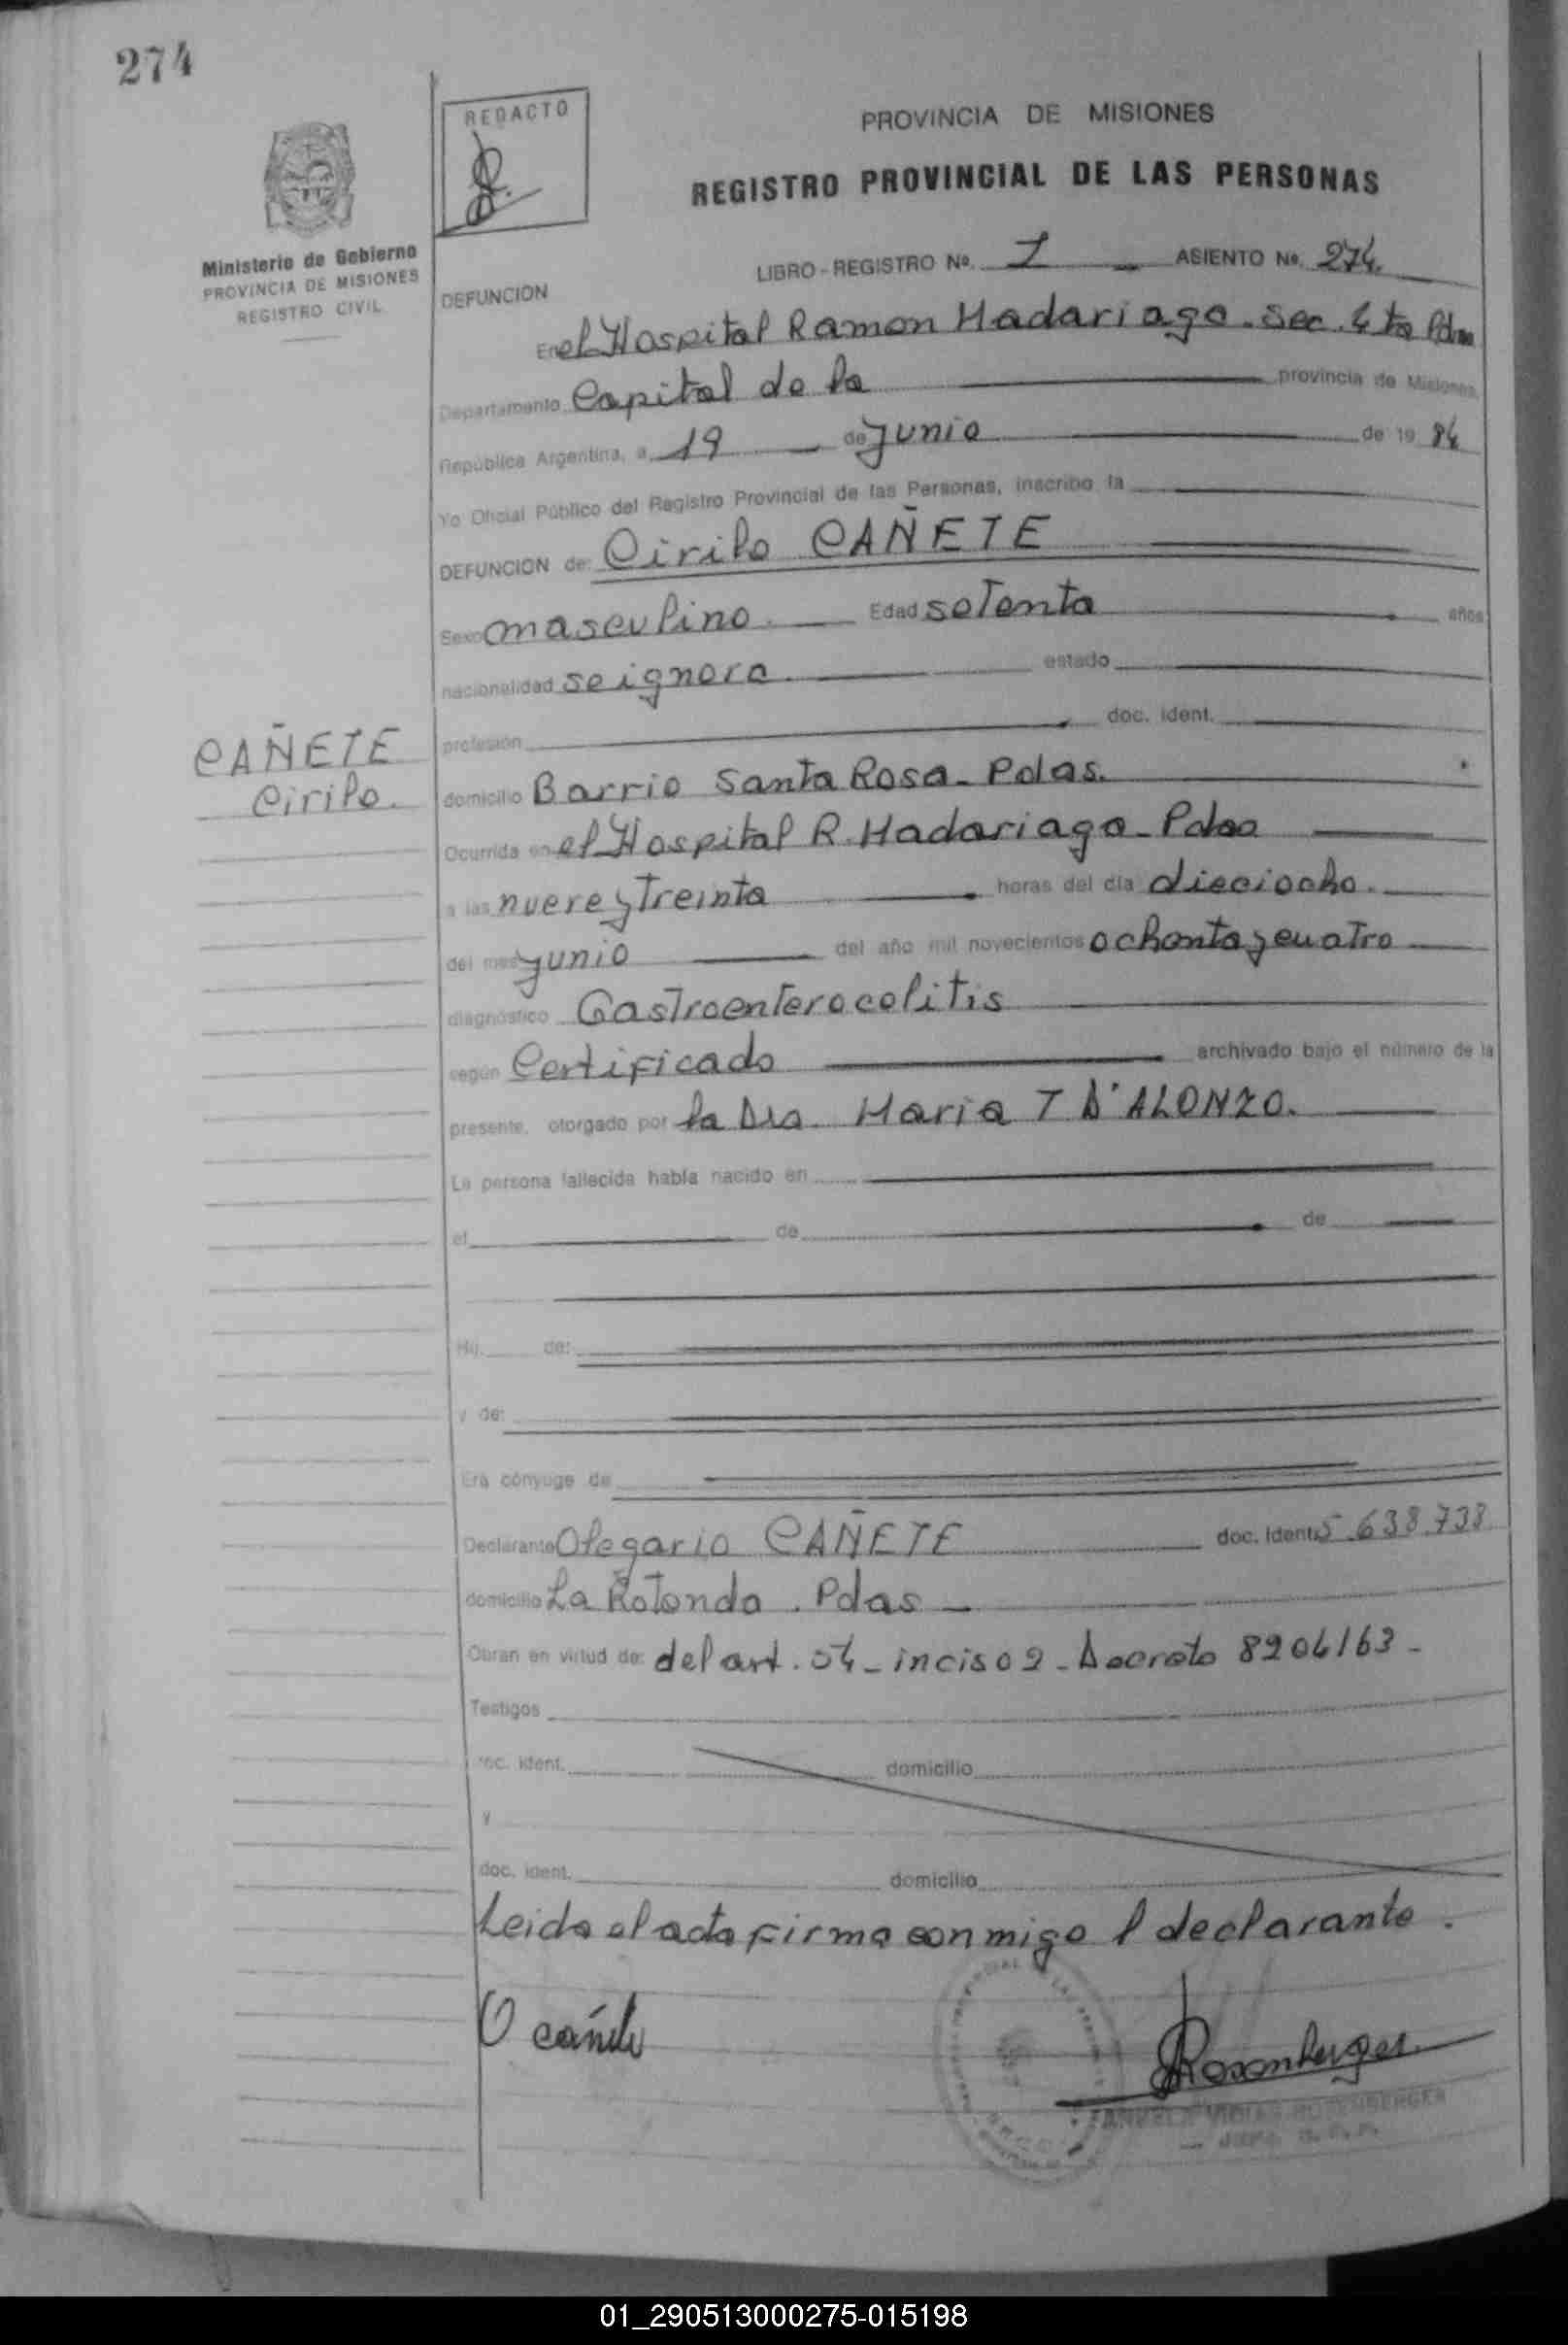 274
REDACTO
PROVINCIA DE MISIONES
REGISTRO PROVINCIAL DE LAS PERSONAS
Ministerio de Gobierno
PROVINCIA DE MISIONES
REGISTRO CIVIL
LIBRO - REGISTRO Nº. 1 ASIENTO Nº. 274.
DEFUNCION
En el Hospital Ramon Madariaga. Sec. 4ta Pdas
Departamento Capital de la provincia de Misiones,
República Argentina, a 19 de junio de 19 84
Yo Oficial Público del Registro Provincial de las Personas, inscribo la
DEFUNCION de: Cirilo CAÑETE
Sexo masculino. Edad setenta años
nacionalidad se ignora. estado
CAÑETE
Cirilo.
profesión doc. ident.
domicilio Barrio Santa Rosa - Pdas.
Ocurrida en el Hospital R. Madariaga - Pdas
a las nueve y Treinta horas del día dieciocho.
del mes junio del año mil novecientos ochenta y cuatro
diagnóstico Gastroenterocolitis
según Certificado archivado bajo el número de la
presente, otorgado por la Dra. Maria T D'ALONZO.
La persona fallecida había nacido en
el de de
Hij de:
y de:
Era cónyuge de
Declarante Olegario CAÑETE doc. ident. 5.638.738
domicilio La Rotonda. Pdas -
Obran en virtud de: del art. 54 - inciso 2 - Decreto 8204/63 -
Testigos
doc. ident. domicilio
y
doc. ident. domicilio
Leida el acta firma conmigo l declarante.
O cañete
Rosenberger
ROSENBERGER
01_290513000275-015198